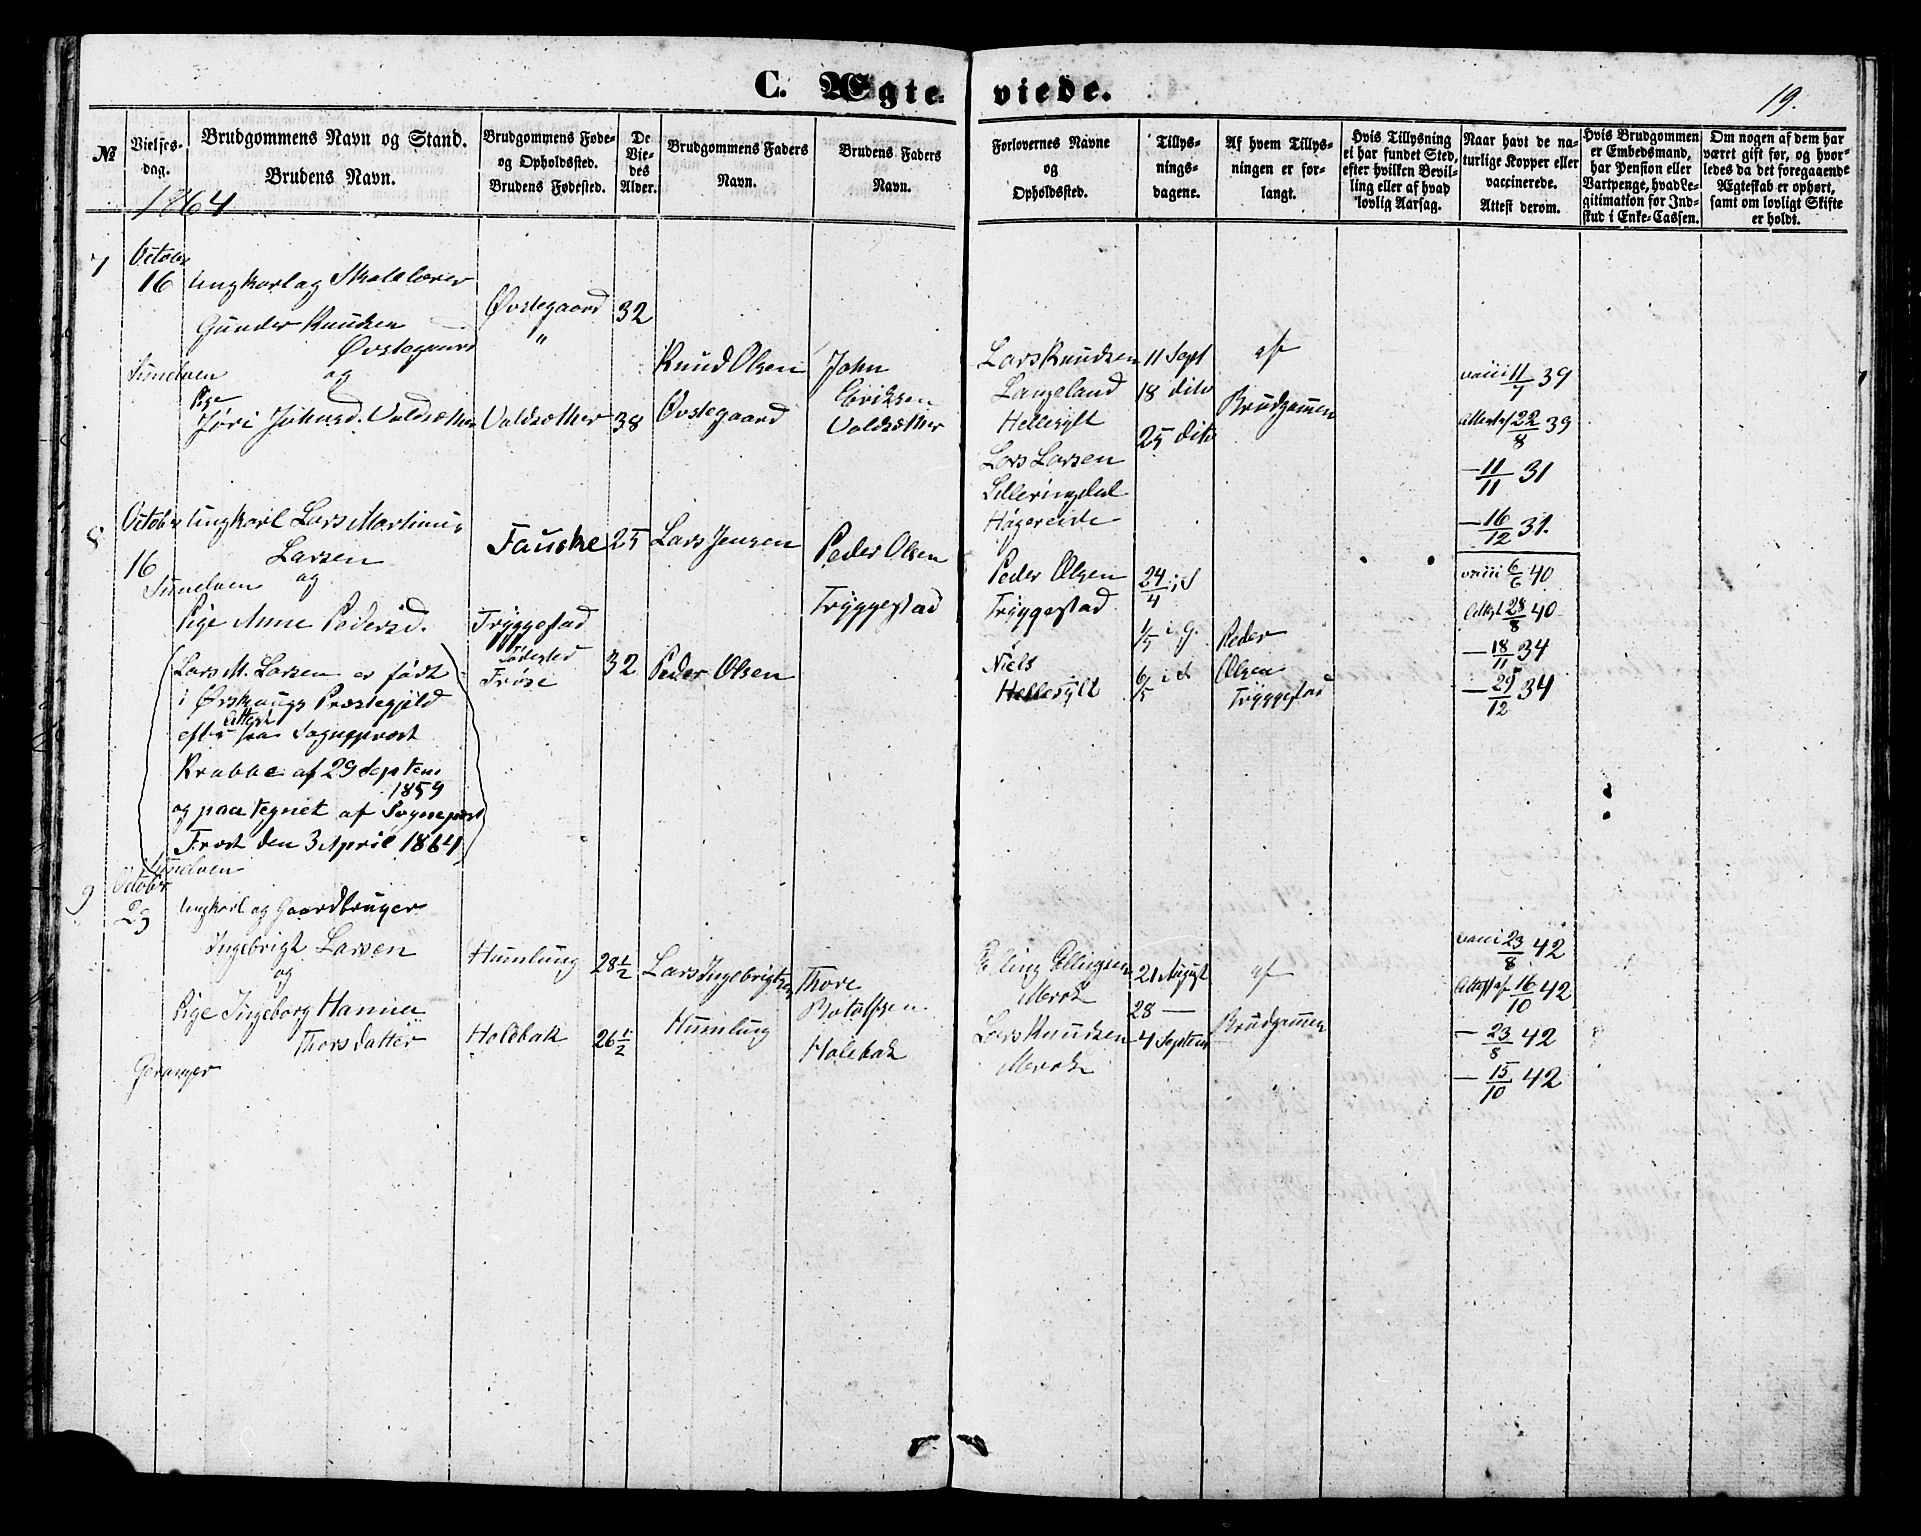 C. Ægteviede.
19.
№
Vielses-
dag.
Brudgommens Navn og Stand.
Brudens Navn.
Brudgommens Føde-
og Opholdssted.
Brudens Fødested.
De
Vie-
des
Alder.
Brudgommens Faders
Navn.
Brudens Faders
Navn.
Forlovernes Navne
og
Opholdssted.
Tillys-
nings-
dagene.
Af hvem Tillys-
ningen er for-
langt.
Hvis Tillysning
ei har fundet Sted,
efter hvilken Bevil-
ling eller af hvad
lovlig Aarsag.
Naar havt de na-
turlige Kopper eller
vaccinerede.
Attest derom.
Hvis Brudgommen
er Embedsmand,
har Pension eller
Vartpenge, hvad Le-
gitimation for Ind-
skud i Enke-Cassen.
Om nogen af dem har
været gift før, og hvor-
ledes da det foregaaende
Ægteskab er ophørt,
samt om lovligt Skifte
er holdt.
1864
7
Octobr
16
Sunelven
Ungkarl og Skolelærer
Gunder Knudsen
Øvstegaard
og
Pige
Jøri Johnsd. Valdsæther
Øvstegaard
"
Valdsæther
32
38
Knud Olsen
Øvstegaard
John
Eriksen
Valdsæther
Lars Knudsen
Langeland
Hellesylt
Lars Larsen
11 Sept
18 dito
25 dito
af
Brudgommen
vacci 11/7 39
Attest af 22/8 39
- 11/11 31
- 16/12 31.
8
Octobr
16
Sunelven
Ungkarl Lars Martinus
Larsen
og
Pige Anne Pedersd.
(Lars M. Larsen er født
i Ørskougs Præstegjeld
efter Attest fra Sognepræst
Krabbe af 29 Septem
1859
og paategnet af Sognepræst
Frost den 3 April 1864)
Fauske
Tryggestad
Fødested
Frøse
25
32
Lars Jensen
Peder Olsen
Peder Olsen
Tryggestad
Peder Olsen
Tryggestad
Niels
Hellesylt
24/4 i S
1/5 i G.
6/5 i S
Peder
Olsen
Tryggestad
vacci 6/6 40
Attest 28/8 40
- 18/11 34
- 29/12 34
9
Sunelven
Octobr
23
Geranger
Ungkarl og Gaardbruger
Ingebrigt Larsen
og
Pige Ingeborg Hanna
Thorsdatter
Humlung
Holebak
28 1/2
26 1/2
Lars Ingebrigtsen
Humlung
Thore
Botolfsen
Holebak
Elling Ellingsen
Merok
Lars Knudsen
Merok
21 August
28 —
4 Septem
af
Brudgommen
vacci 23/8 42
Attest af 16/10 42
- 23/8 42
- 15/10 42